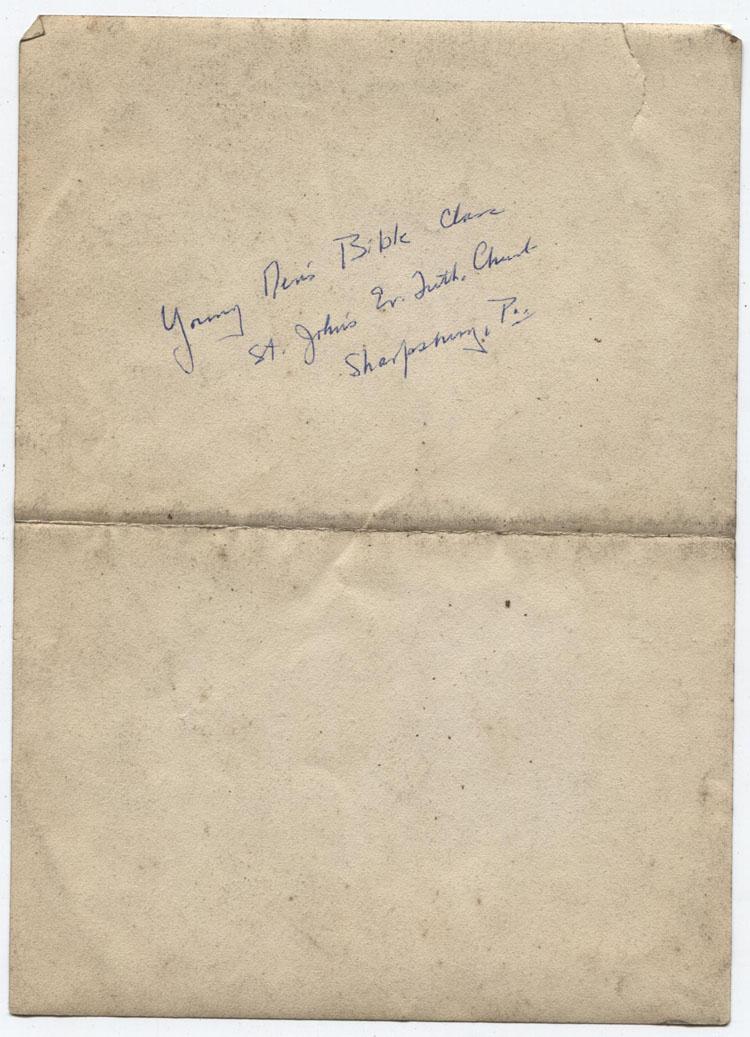 Young Men's Bible Class
St. John's Ev. Luth. Church
Sharpsburg, Pa.